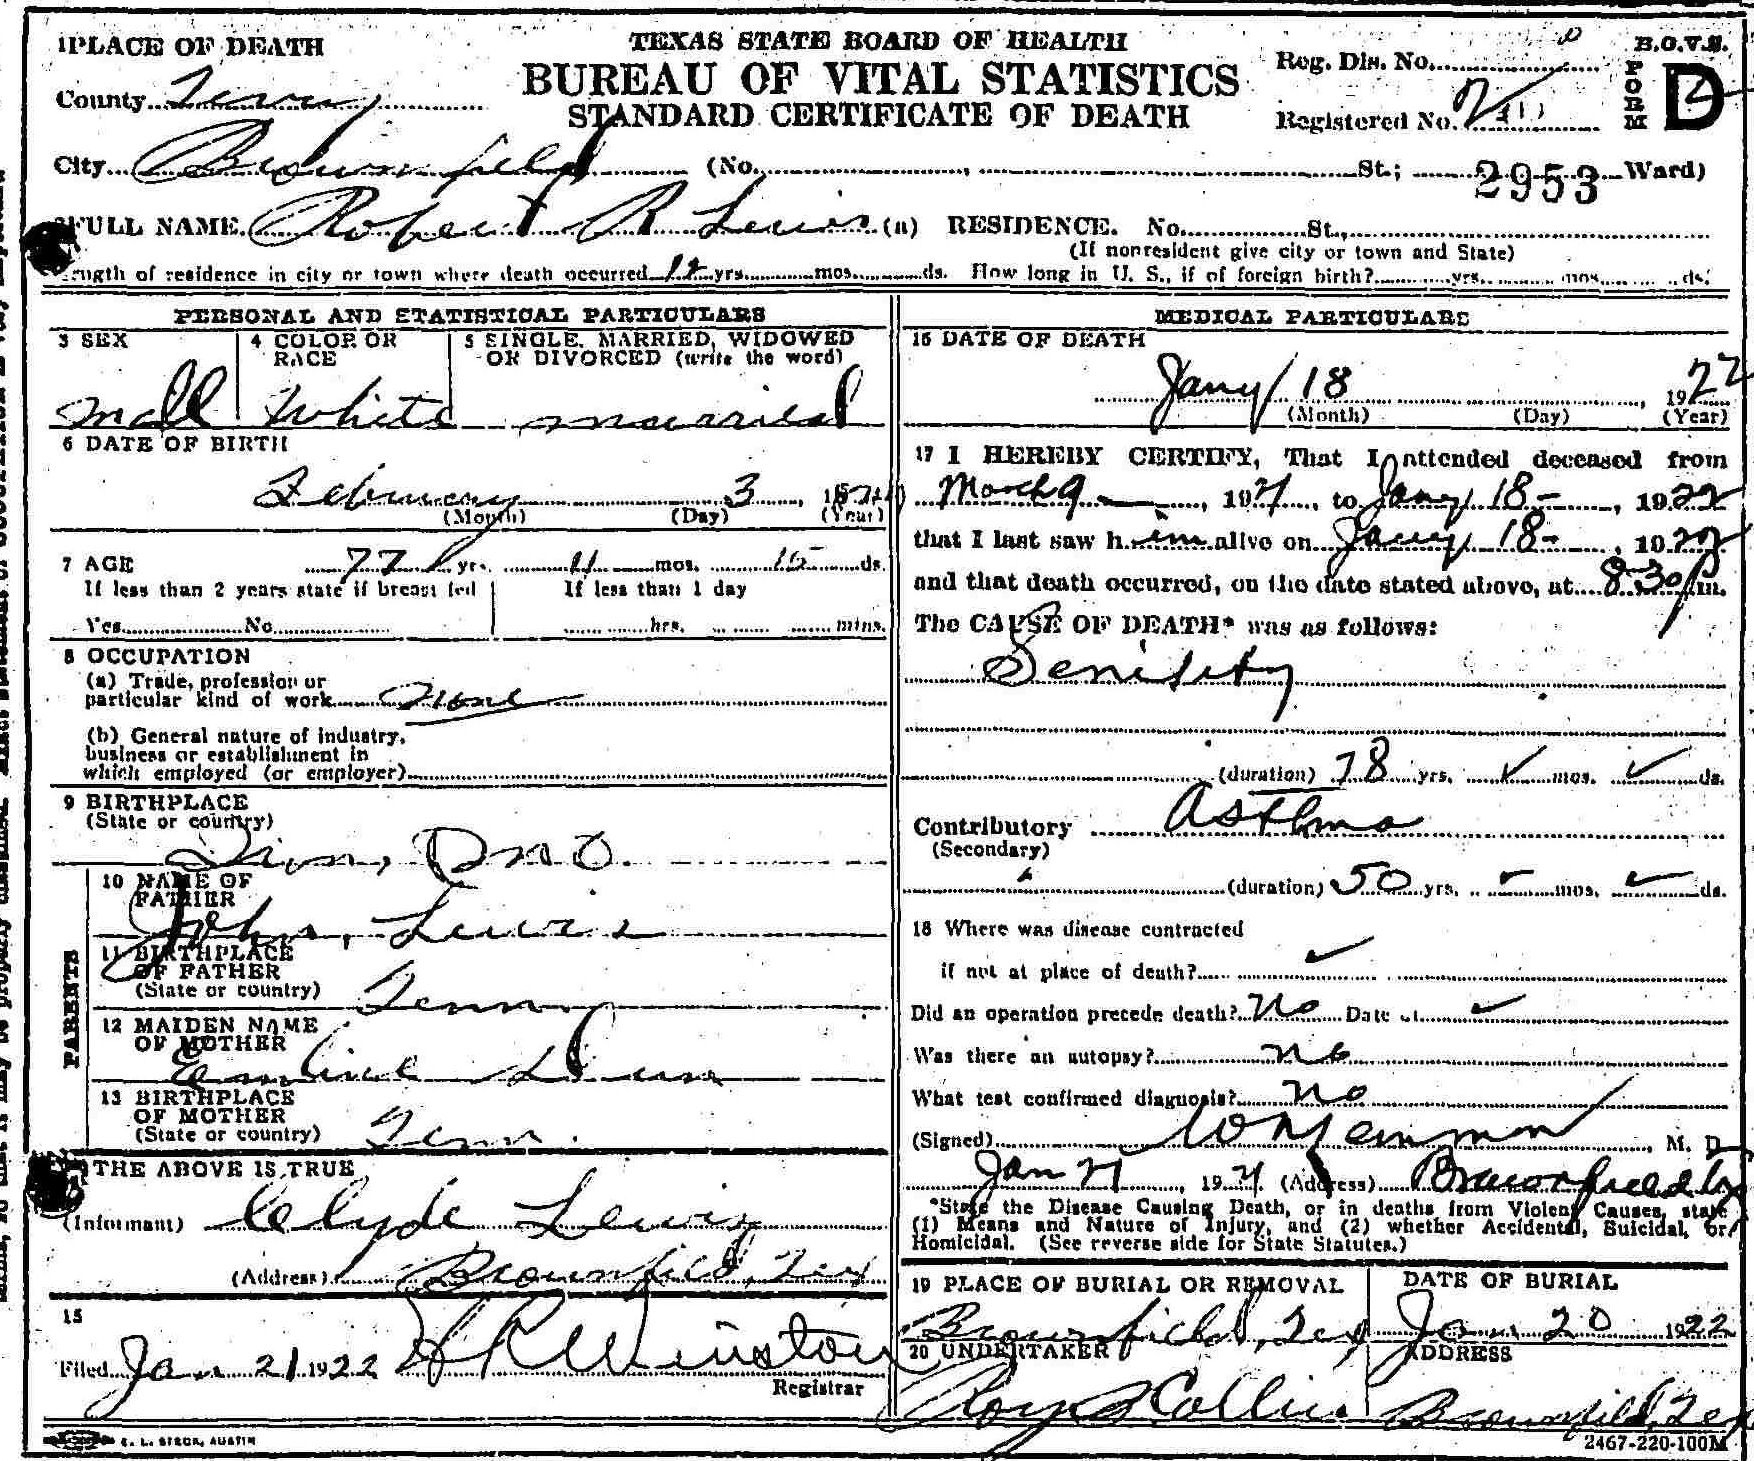 1 PLACE OF DEATH
TEXAS STATE BOARD OF HEALTH
BUREAU OF VITAL STATISTICS
STANDARD CERTIFICATE OF DEATH
Reg. Dis. No.
Registered No.
B.O.V.S.
FORM D
County Terry
City Brownfield (No. , St.; 2953 Ward)
FULL NAME Robert R Lewis (a) RESIDENCE. No. St.,
(If nonresident give city or town and State)
length of residence in city or town where death occurred 12 yrs. mos. ds. How long in U. S., if of foreign birth? yrs. mos. ds.
PERSONAL AND STATISTICAL PARTICULARS
3 SEX
4 COLOR OR RACE
5 SINGLE, MARRIED, WIDOWED OR DIVORCED (write the word)
Male White married
6 DATE OF BIRTH
February 3, 18
(Month) (Day) (Year)
7 AGE 77 yrs. 11 mos. 15 ds.
If less than 2 years state if breast fed
If less than 1 day
Yes No hrs. mins.
8 OCCUPATION
(a) Trade, profession or
particular kind of work none
(b) General nature of industry,
business or establishment in
which employed (or employer)
9 BIRTHPLACE
(State or country)
10 NAME OF FATHER
John Lewis
11 BIRTHPLACE OF FATHER
(State or country) Tenn
12 MAIDEN NAME OF MOTHER
Emline
13 BIRTHPLACE OF MOTHER
(State or country) Tenn.
PARENTS
THE ABOVE IS TRUE
(Informant) Clyde Lewis
(Address) Brownfield, Tex
15
Filed Jan 21 1922 Winston
Registrar
E. L. STECK, AUSTIN
MEDICAL PARTICULARS
16 DATE OF DEATH
Jany 18 1922
(Month) (Day) (Year)
17 I HEREBY CERTIFY, That I attended deceased from
March 9, 1921, to Jany 18 -, 1922
that I last saw him alive on Jany 18 -, 1922
and that death occurred, on the date stated above, at 8:30 p.m.
The CAUSE OF DEATH* was as follows:
Senility
(duration) 78 yrs. ✓ mos. ✓ ds.
Contributory Asthma
(Secondary)
(duration) 50 yrs. ✓ mos. ✓ ds.
18 Where was disease contracted
if not at place of death? ✓
Did an operation precede death? No Date of ✓
Was there an autopsy? no
What test confirmed diagnosis? no
(Signed) M. D.
Jan 21, 1921 (Address) Brownfield Tx
*State the Disease Causing Death, or in deaths from Violent Causes, state
(1) Means and Nature of Injury, and (2) whether Accidental, Suicidal, or
Homicidal. (See reverse side for State Statutes.)
19 PLACE OF BURIAL OR REMOVAL
DATE OF BURIAL
Brownfield, Tex Jan 20 1922
20 UNDERTAKER
ADDRESS
Roy B Collier Brownfield, Tex
2467-220-100M